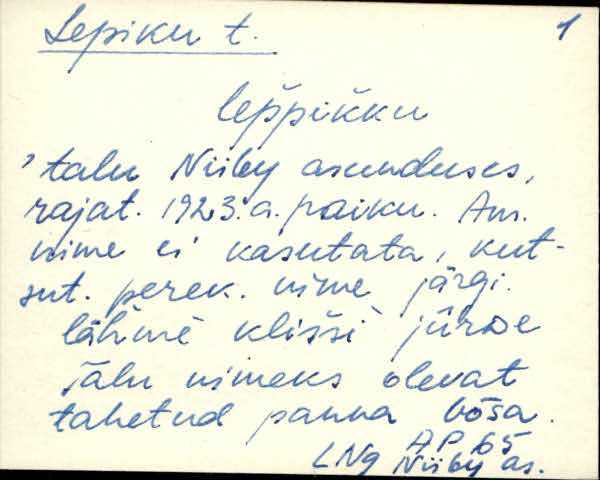 Lepiku t. 1
lep̆pik̆ku
'talu Niiby asunduses,
rajat. 1923. a. paiku. Am.
nime ei kasutata, kut-
sut. perek. nime järgi.
lähmē klišši jūrde
Talu nimeks olevat
tahetud panna Võsa.
AP 65
LNg Niiby as.